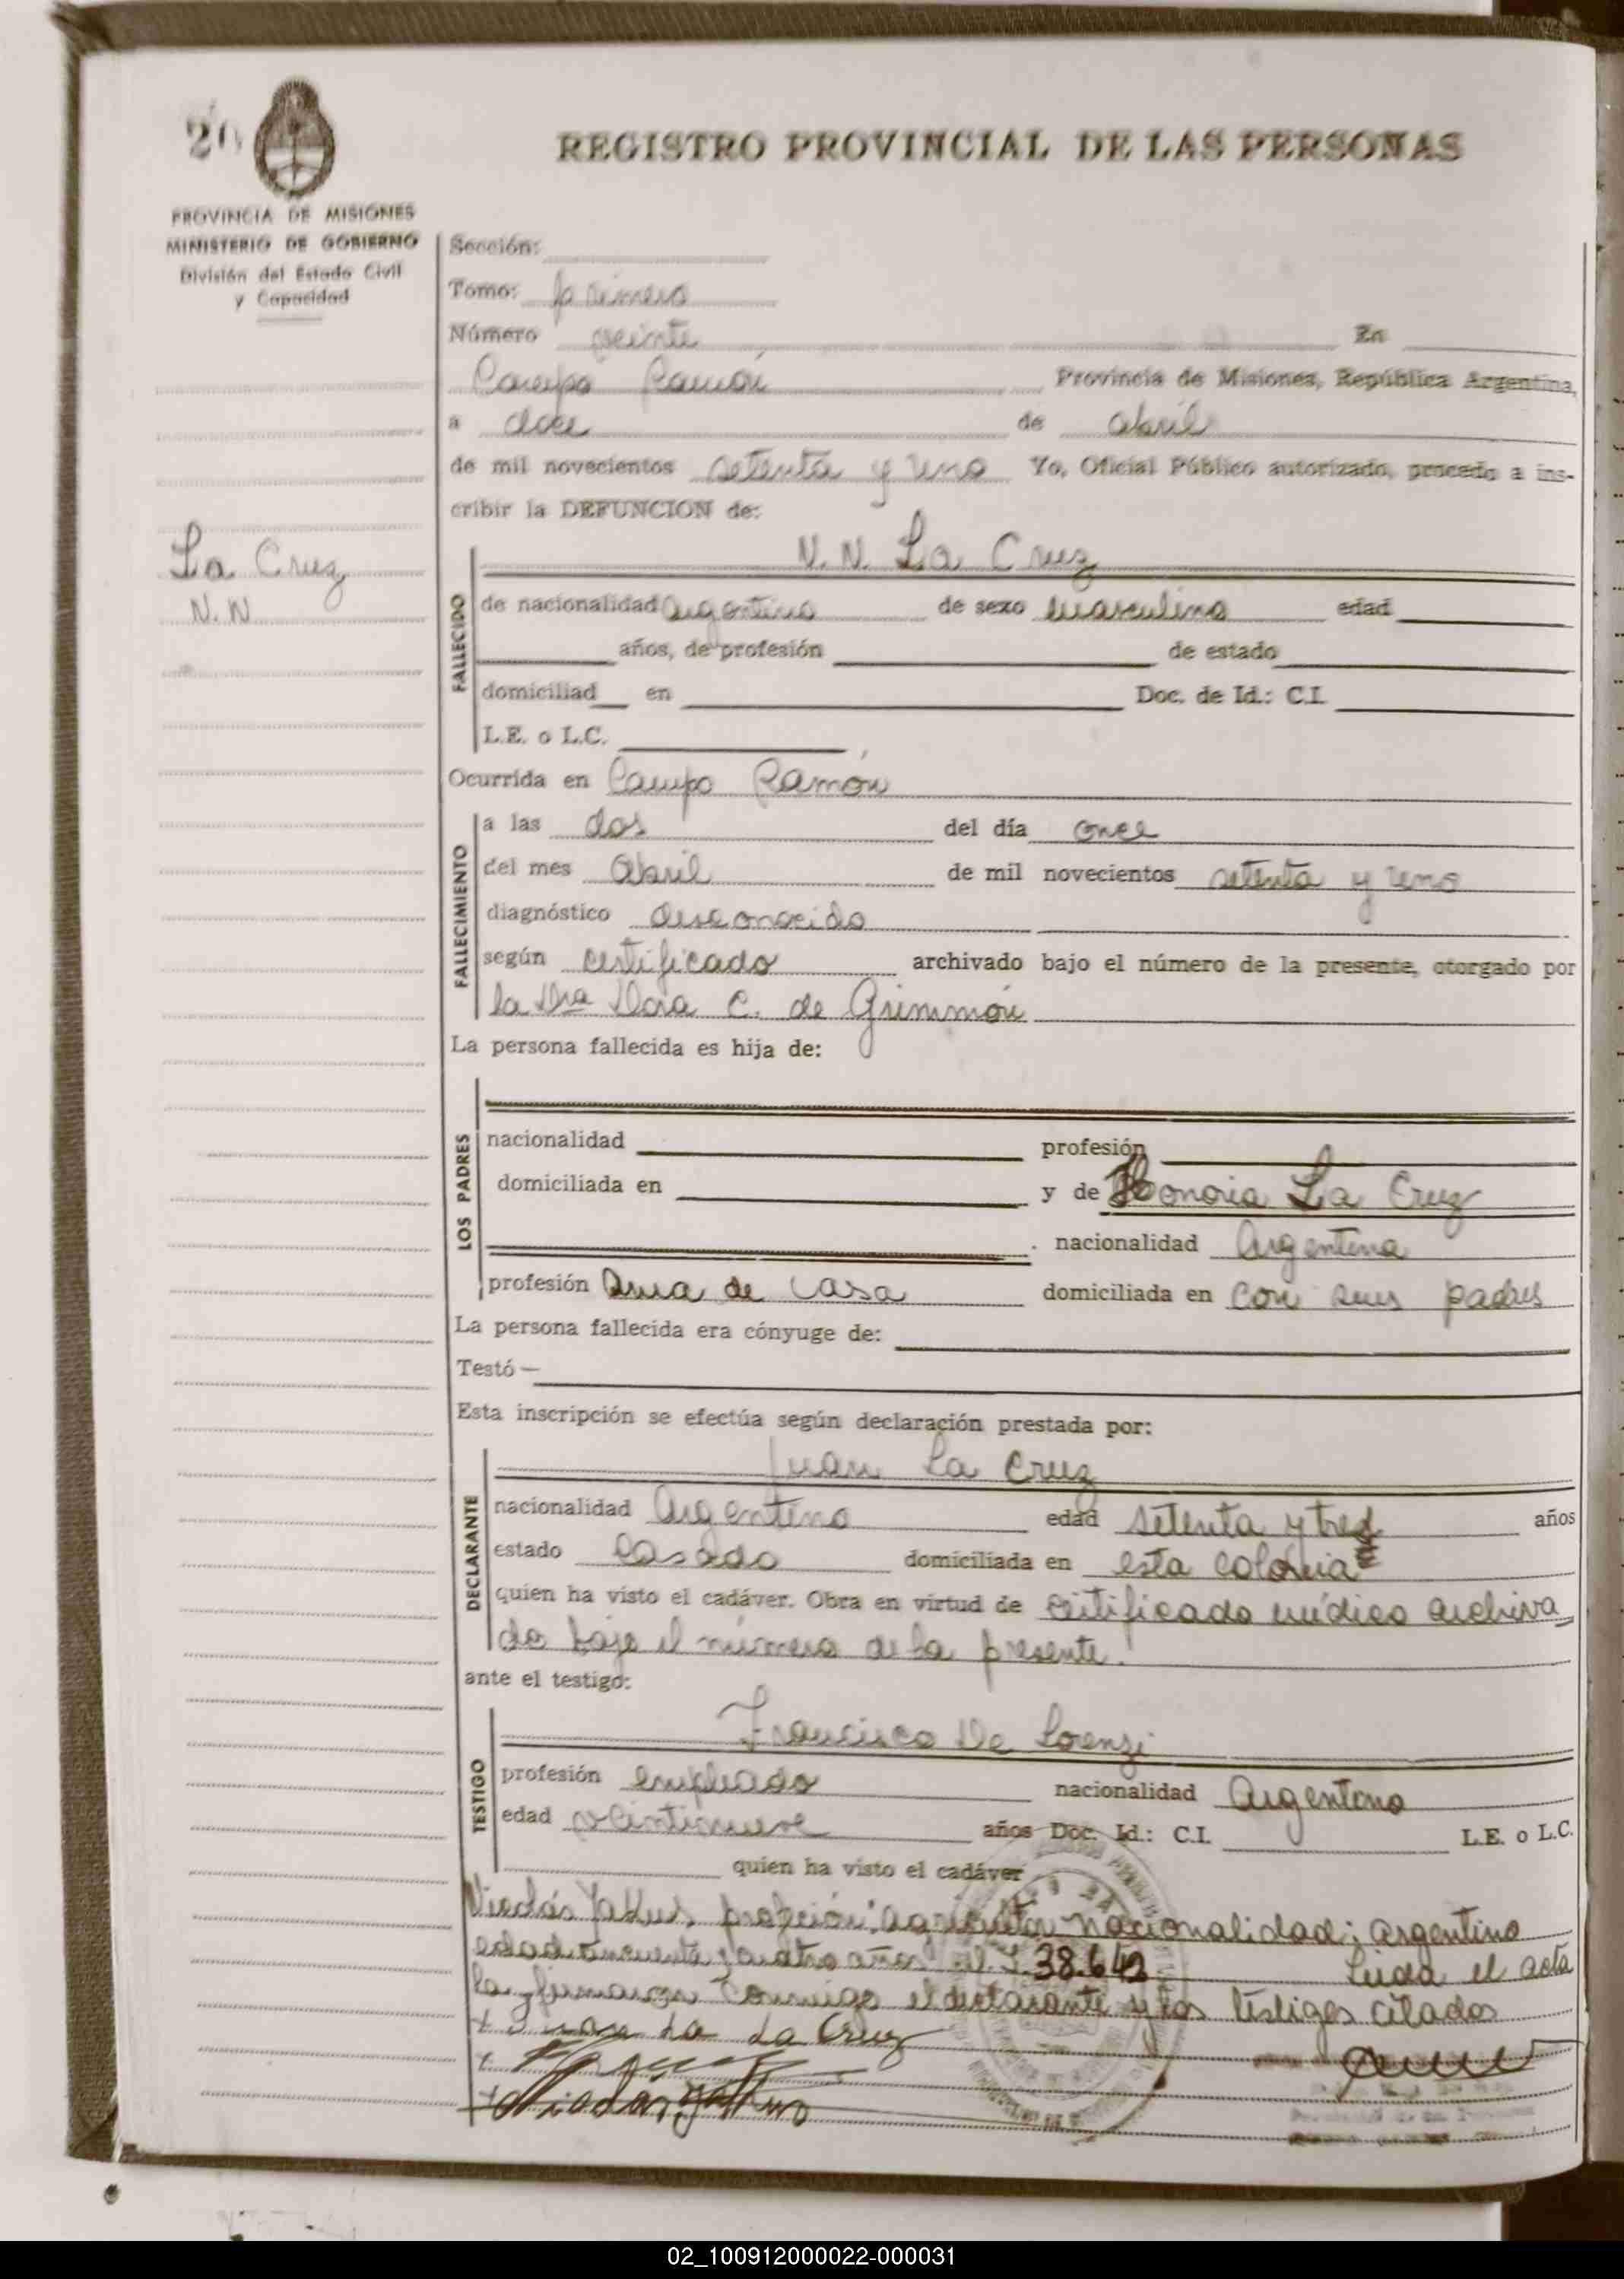 20
REGISTRO PROVINCIAL DE LAS PERSONAS
PROVINCIA DE MISIONES
MINISTERIO DE GOBIERNO
División del Estado Civil
y Capacidad
Sección:
Tomo: primero
Número veinte En
Campo Ramón Provincia de Misiones, República Argentina,
a doce de abril
de mil novecientos setenta y uno Yo, Oficial Público autorizado, procedo a ins-
cribir la DEFUNCION de:
La Cruz
N.N.
N.N. La Cruz
FALLECIDO
de nacionalidad argentina de sexo masculino edad
años, de profesión de estado
domiciliad en Doc. de Id.: C.I.
L.E. o L.C.
Ocurrida en Campo Ramón
FALLECIMIENTO
a las dos del día once
del mes Abril de mil novecientos setenta y uno
diagnóstico desconocido
según certificado archivado bajo el número de la presente, otorgado por
la Dra Dora C. de Grimmón
La persona fallecida es hija de:
LOS PADRES
nacionalidad profesión
domiciliada en y de Honoria La Cruz
nacionalidad Argentina
profesión Ama de casa domiciliada en con sus padres
La persona fallecida era cónyuge de:
Testó —
Esta inscripción se efectúa según declaración prestada por:
Juan La Cruz
DECLARANTE
nacionalidad Argentino edad setenta y tres años
estado Casado domiciliada en esta colonia
quien ha visto el cadáver. Obra en virtud de certificado médico archiva
do bajo el número de la presente.
ante el testigo:
Francisco De Lorenzi
TESTIGO
profesión empleado nacionalidad Argentino
edad veintinueve años Doc. Id.: C.I. L.E. o L.C.
quien ha visto el cadáver
Nicolás profeción: agricultor nacionalidad: argentino
edad cincuenta y cuatro años 38.642 Leída el acta
la firmaron conmigo el declarante y los testigos citados
Juan La Cruz
02_100912000022-000031